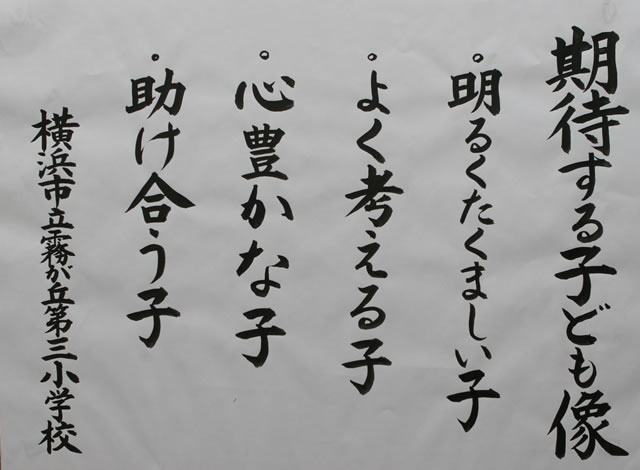 期待する子ども像
。明るくたくましい子
。よく考える子
。心豊かな子
。助け合う子
横浜市立霧が丘第三小学校